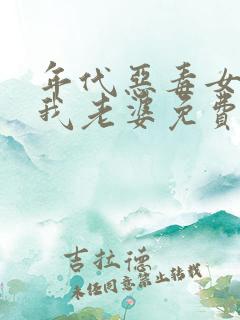 年代惡毒女
我老婆免費
吉拉德
未经同意禁止转载